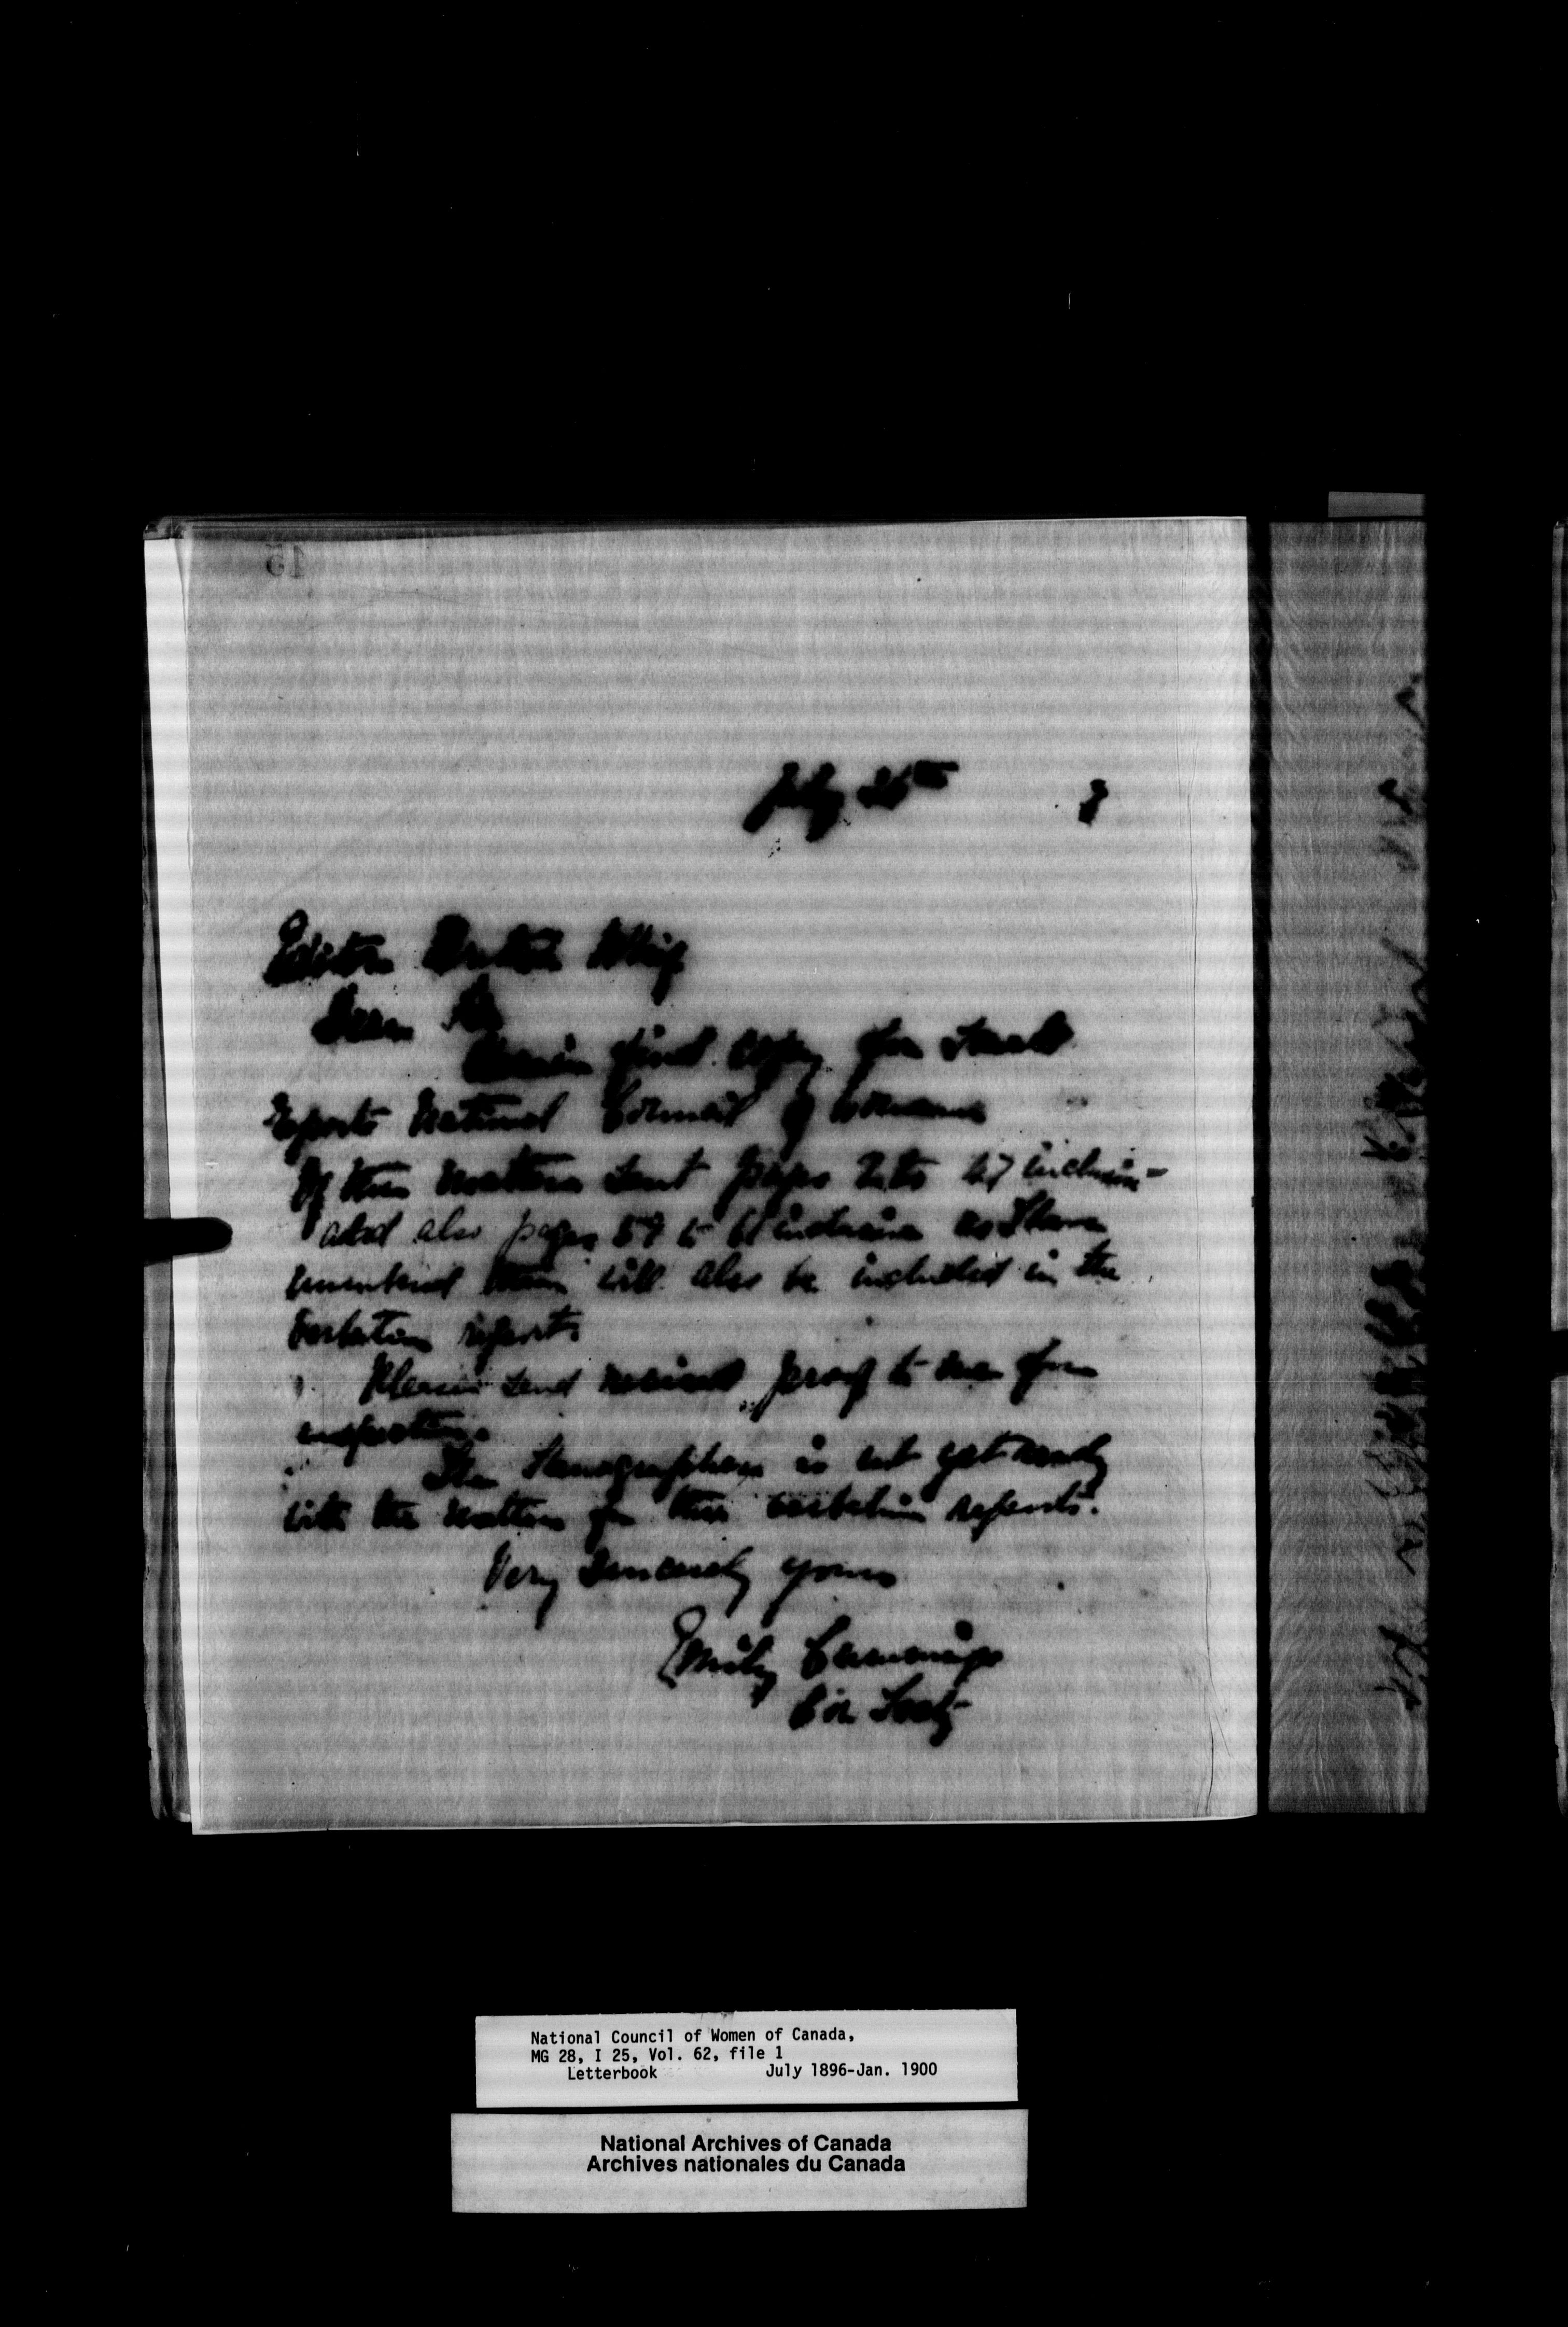 15
July 26th 7
Editor British Whig
Dear Sir
Herein find copy for small
reports National Council of Women
Of this matter sent pages 2 to 47 inclusive
and also pages 59 to 61 inclusive as I have
them will also be included in the
verbatim reports
Please send revised proof to me for
inspection.
The Stenographer is not yet ready
with the matter for the verbatim reports.
Very Sincerely yours
Emily Cummings
Cor Secty
National Council of Women of Canada,
MG 28, I 25, Vol. 62, file 1
Letterbook July 1896-Jan. 1900
National Archives of Canada
Archives nationales du Canada